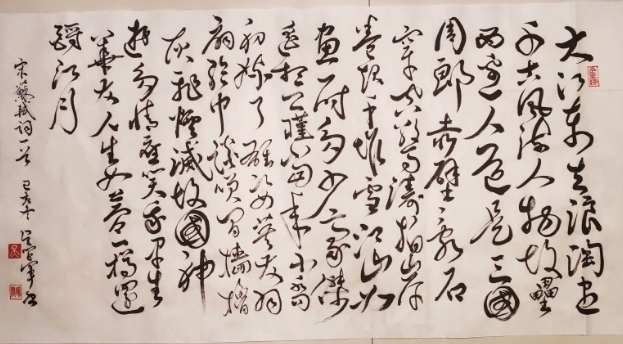 大江东去浪淘尽
千古风流人物故壘
西邊人道是三國
周郎赤壁乱石
穿空惊涛拍岸
卷起千堆雪江山如
画一时多少豪傑
遥想公瑾当年小乔
初嫁了雄姿英发羽
扇纶巾谈笑间檣櫓
灰飛煙滅故國神
遊多情應笑我早生
華发人生如夢一樽還
酹江月
宋蘇軾词一首